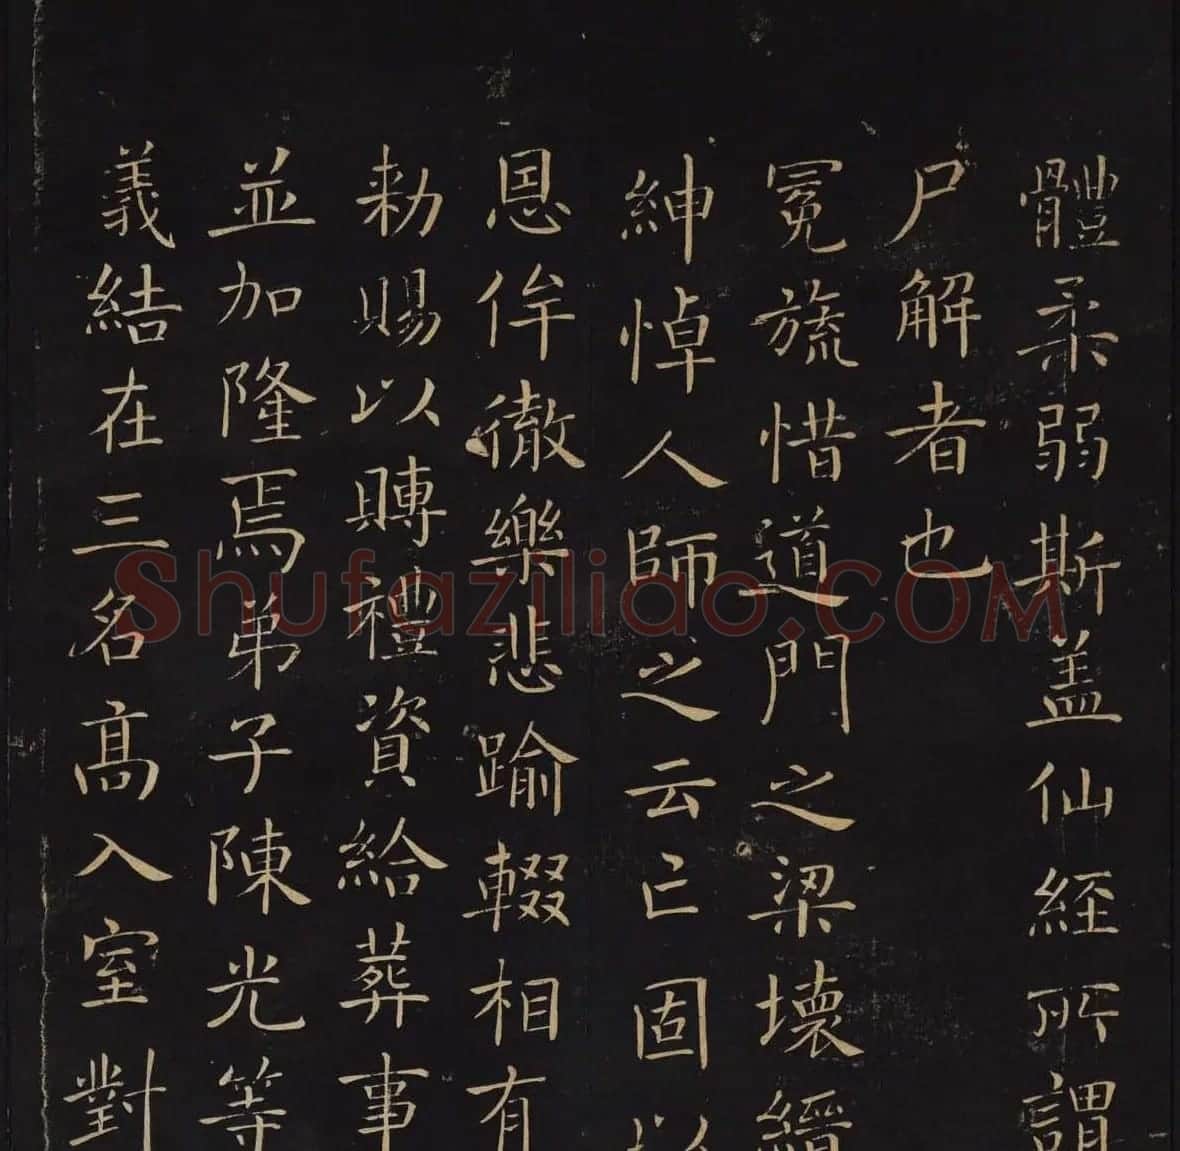 體柔弱斯盖仙經所謂
尸解者也
冕旒惜道門之梁壞縉
紳悼人師之云亡固以
恩侔徹樂悲踰輟相有
勑賜以賻禮資給葬事
並加隆焉弟子陳光等
義結在三名高入室對
Shufaziliao.COM